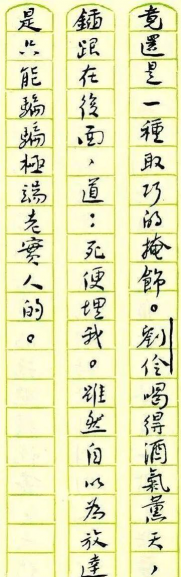 竟還是一種取巧的掩飾。劉伶喝得酒氣薰天，
鍤跟在後面，道：死便埋我。雖然自以為放達
是只能騙騙極端老實人的。